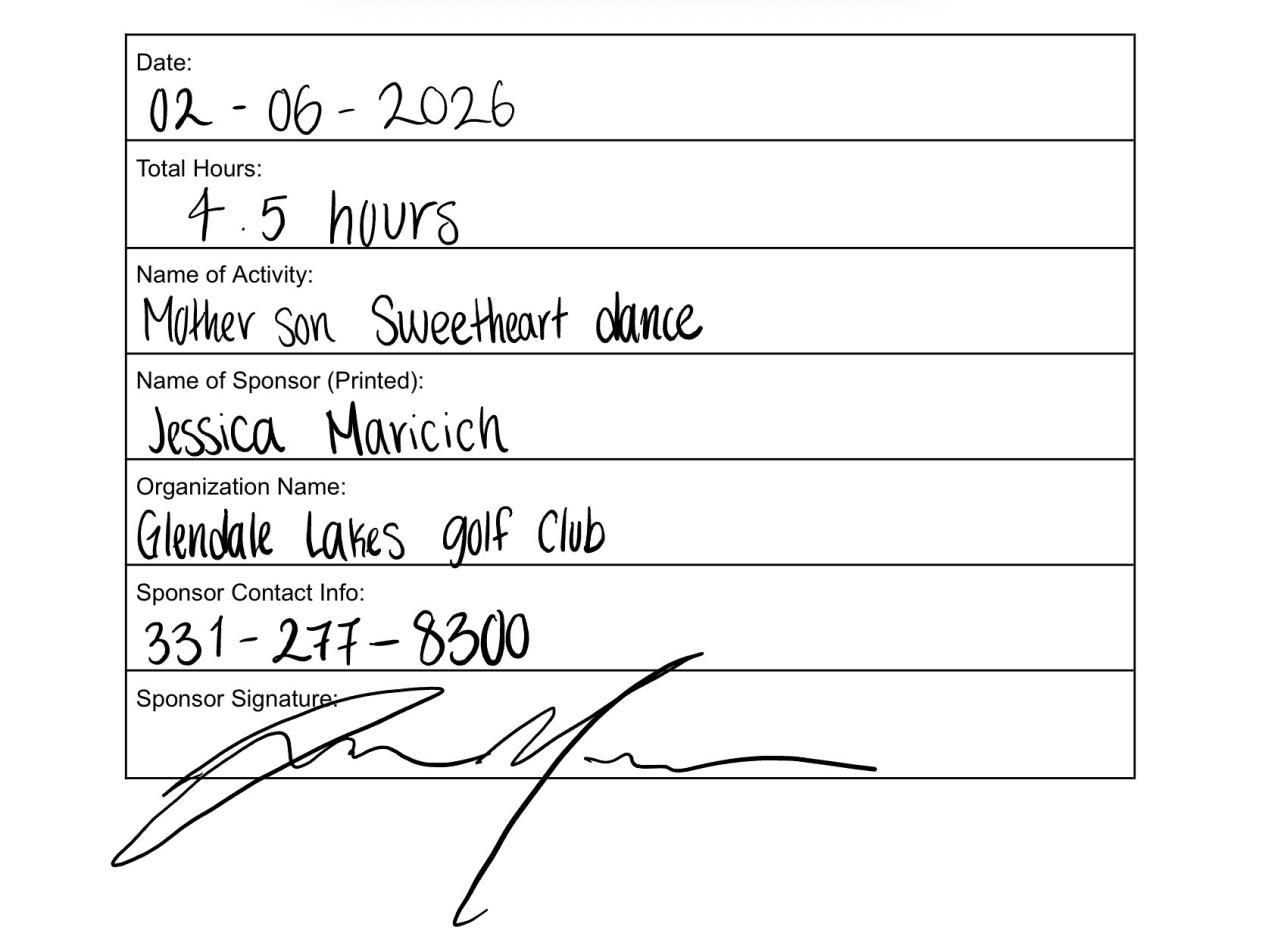 Date:
02 - 06 - 2026
Total Hours:
4.5 hours
Name of Activity:
Mother son Sweetheart dance
Name of Sponsor (Printed):
Jessica Maricich
Organization Name:
Glendale Lakes golf Club
Sponsor Contact Info:
331-277-8300
Sponsor Signature: